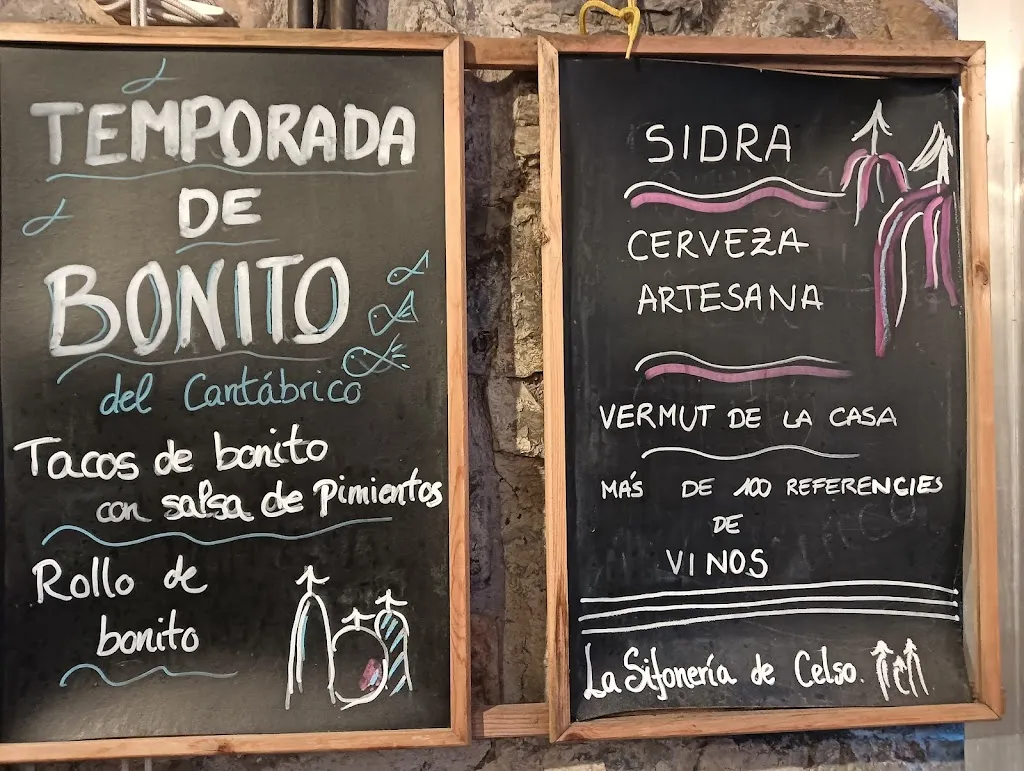 TEMPORADA
DE
BONITO
del Cantábrico
Tacos de bonito
con salsa de Pimientos
Rollo de
bonito
SIDRA
CERVEZA
ARTESANA
VERMUT DE LA CASA
MÁS DE 100 REFERENCIES
DE
VINOS
La Sifonería de Celso.